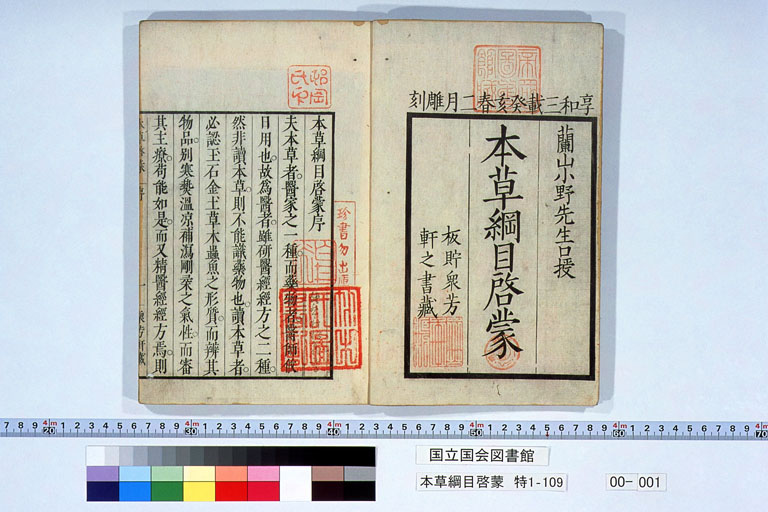 享和三載癸亥春二月雕刻
蘭山小野先生口授
本草綱目啓蒙
板貯衆芳
軒之書藏
本草綱目啓蒙序
夫本草者醫家之一種而藥物者醫師飲
日用也故爲醫者雖研醫經經方之二種
然非讀本草則不能識藥物也讀本草者
必認玉石金土草木蟲魚之形質而辨其
物品別寒𤍠溫凉補瀉剛柔之氣性而審
其主療苟能如是而又精醫經經方焉則
珍書勿出
国立国会図書館
本草綱目啓蒙 特1-109
00- 001